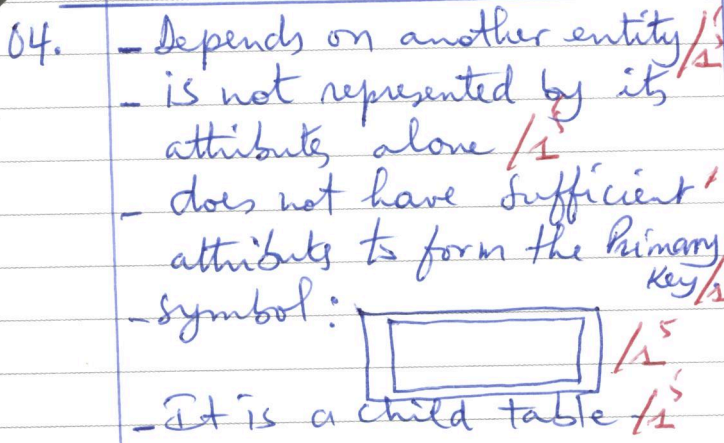 04. - Depends on another entity /1
- is not represented by its
attributes alone /1
- does not have sufficient
attributs to form the Primary
Key /1
- symbol : /1 5
- It is a child table /1